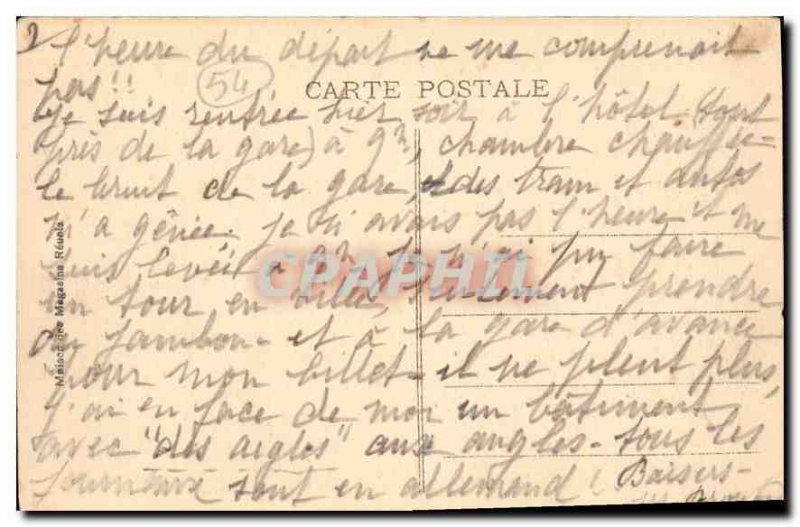 2 l'heure du départ ne me comprenait
pas!!
54
CARTE POSTALE
Je suis rentrée hier soir à l'hôtel (tout
près de la gare) à 9h, chambre chauffée -
le bruit de la gare, des tram et autos
m'a gênée. je n'avais pas l'heure et me
suis levée à 8h je n'ai pu faire
un tour en ville, seulement prendre
du jambon et à la gare d'avance
pour mon billet - il ne pleut plus,
j'ai en face de moi un bâtiment
avec "des aigles" aux angles - tous les
journaux sont en allemand! Baisers -
Maison des Magasins Réunis
CPAPHIL